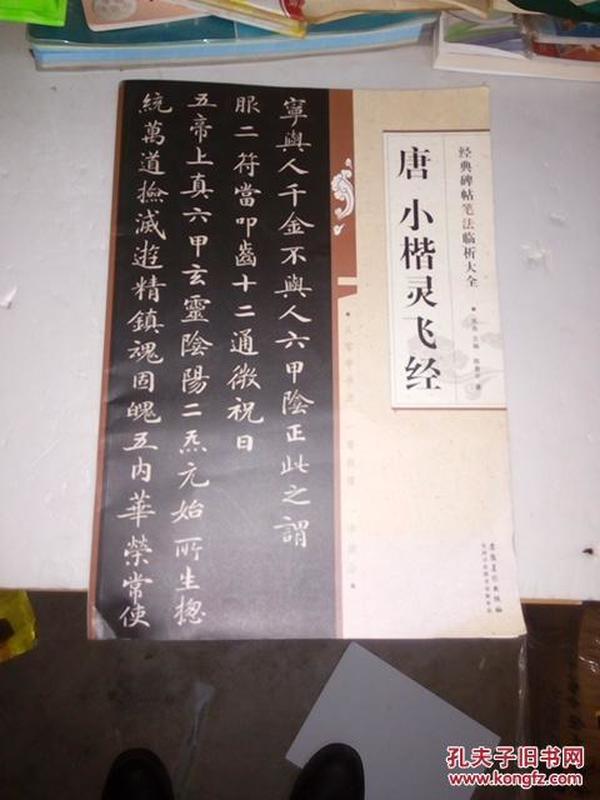 经典碑帖笔法临析大全
唐 小楷灵飞经
寧與人千金不與人六甲陰正此之謂
服二符當叩齒十二通微祝曰
五帝上真六甲玄靈陰陽二炁元始所生摠
統萬道撿滅遊精鎮魂固魄五内華榮常使
孔夫子旧书网
www.kongfz.com